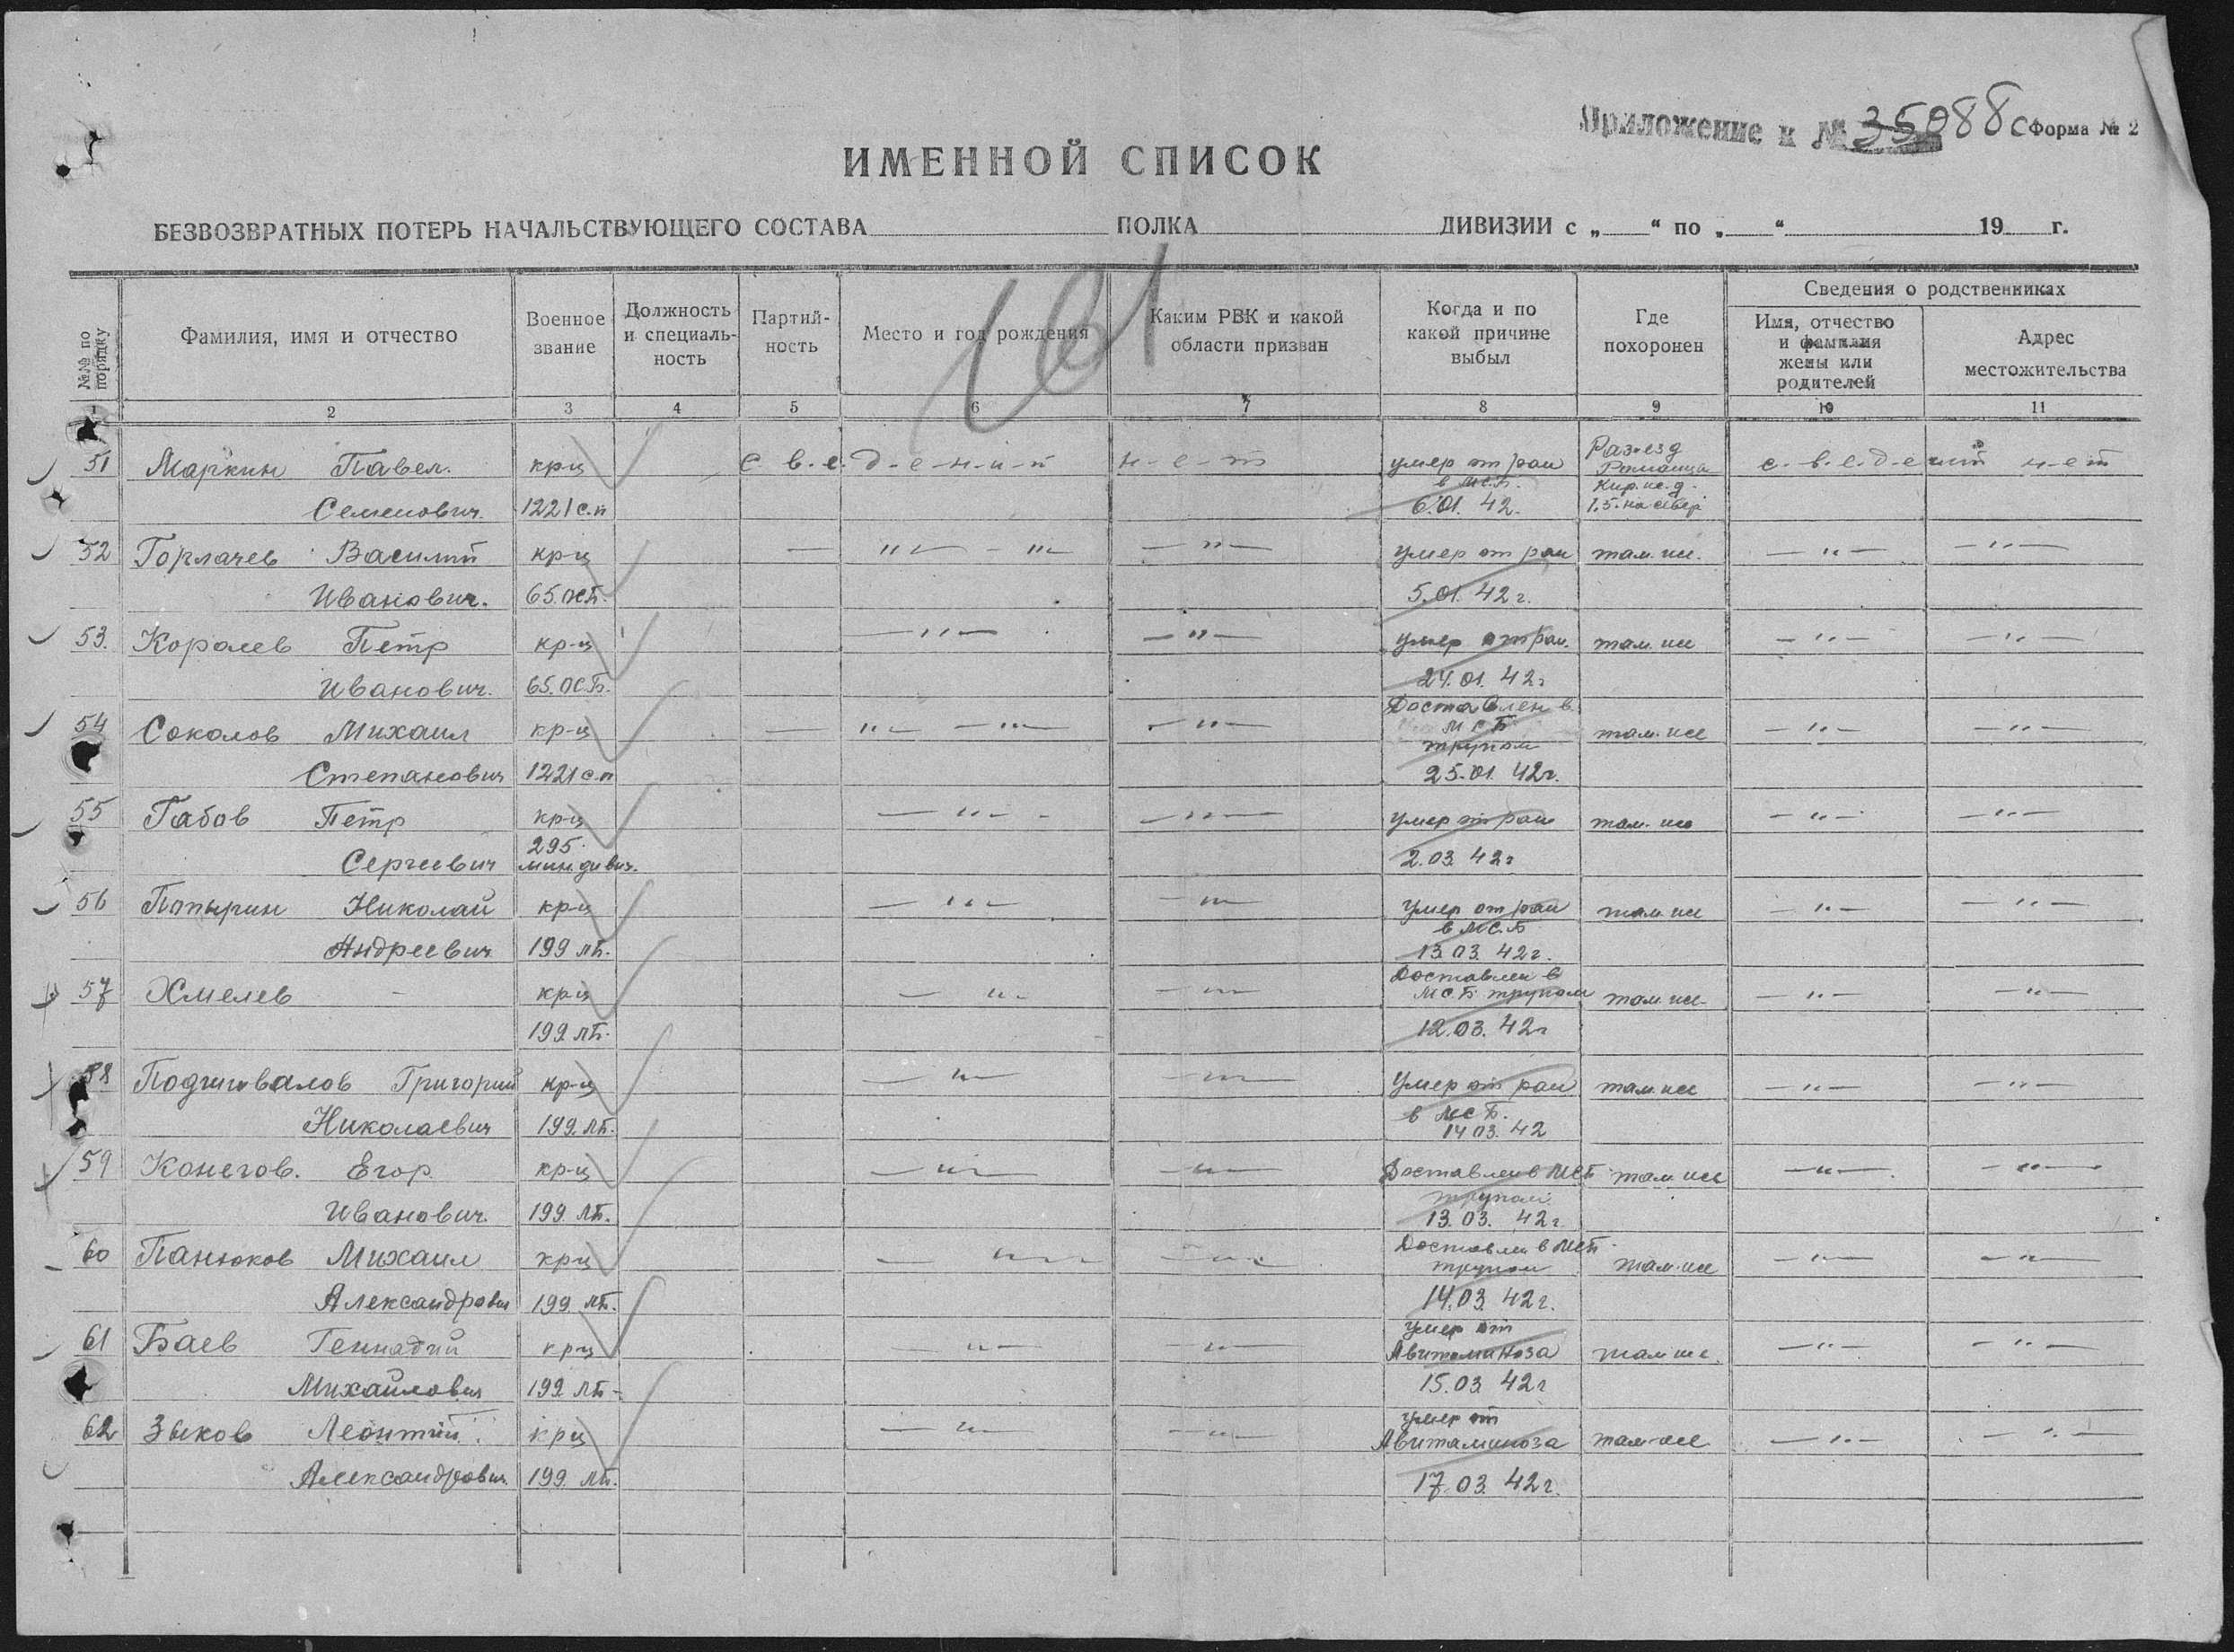 Приложение к № 35088с Форма № 2
ИМЕННОЙ СПИСОК
БЕЗВОЗВРАТНЫХ ПОТЕРЬ НАЧАЛЬСТВУЮЩЕГО СОСТАВА ПОЛКА ДИВИЗИИ с „ “ по „ “ 19 г.
161
№№ по порядку
Фамилия, имя и отчество
Военное звание
Должность и специальность
Партий-
ность
Место и год рождения
Каким РВК и какой
области призван
Когда и по
какой причине
выбыл
Где
похоронен
Сведения о родственниках
Имя, отчество
и фамилия
жены или
родителей
Адрес
местожительства
1 2 3 4 5 6 7 8 9 10 11
51 Маркин Павел. кр-ц с-в-е-д-е-н-и-й н-е-т умер от ран Разъезд с-в-е-д-е-ний н-е-т
в МСБ. Кир. ж.д.
Семенович. 1221 с.п 6.01. 42. 1,5 на север
52 Горлачев Василий кр-ц — " — — " — умер от ран там же. — " — — " —
Иванович. 65. ОСБ. 5.01. 42 г.
53. Королев Петр кр-ц — " — — " — умер от ран. там же — " — — " —
Иванович. 65. ОСБ. 24.01. 42 г
54 Соколов Михаил кр-ц — " — — " — Доставлен в МСБ трупом там же — " — — " —
Степанович 1221 с.п 25.01. 42 г.
55 Габов Петр кр-ц — " — — " — умер от ран там же — " — — " —
Сергеевич 295 мин. дивиз. 2.03. 42 г
56 Попырин Николай кр-ц — " — — " — умер от ран там же — " — — " —
в МСБ
Андреевич 199 ЛБ. 13.03. 42 г.
57 Хмелев - кр-ц — " — — " — Доставлен в МСБ трупом там же — " — — " —
199. ЛБ. 12.03. 42 г
58 Григорий кр-ц — " — — " — Умер от ран там же — " — — " —
Николаевич 199. ЛБ. в МСБ.
14 03. 42
59 Конегов. Егор. кр-ц — " — — " — Доставлен в МСБ там же — " — — " —
трупом
Иванович. 199. ЛБ. 13.03. 42 г
60 Панюков Михаил кр-ц — " — — " — Доставлен в МСБ трупом там же — " — — " —
Александрович 199. ЛБ. 14.03. 42 г.
61 Баев Геннадий кр-ц — " — — " — умер от Авитаминоза там же. — " — — " —
Михайлович 199 ЛБ- 15.03. 42 г
62 Зыков Леонтий кр-ц — " — — " — умер от Авитаминоза там же — " — — " —
Александрович 199. ЛБ. 17.03. 42 г.